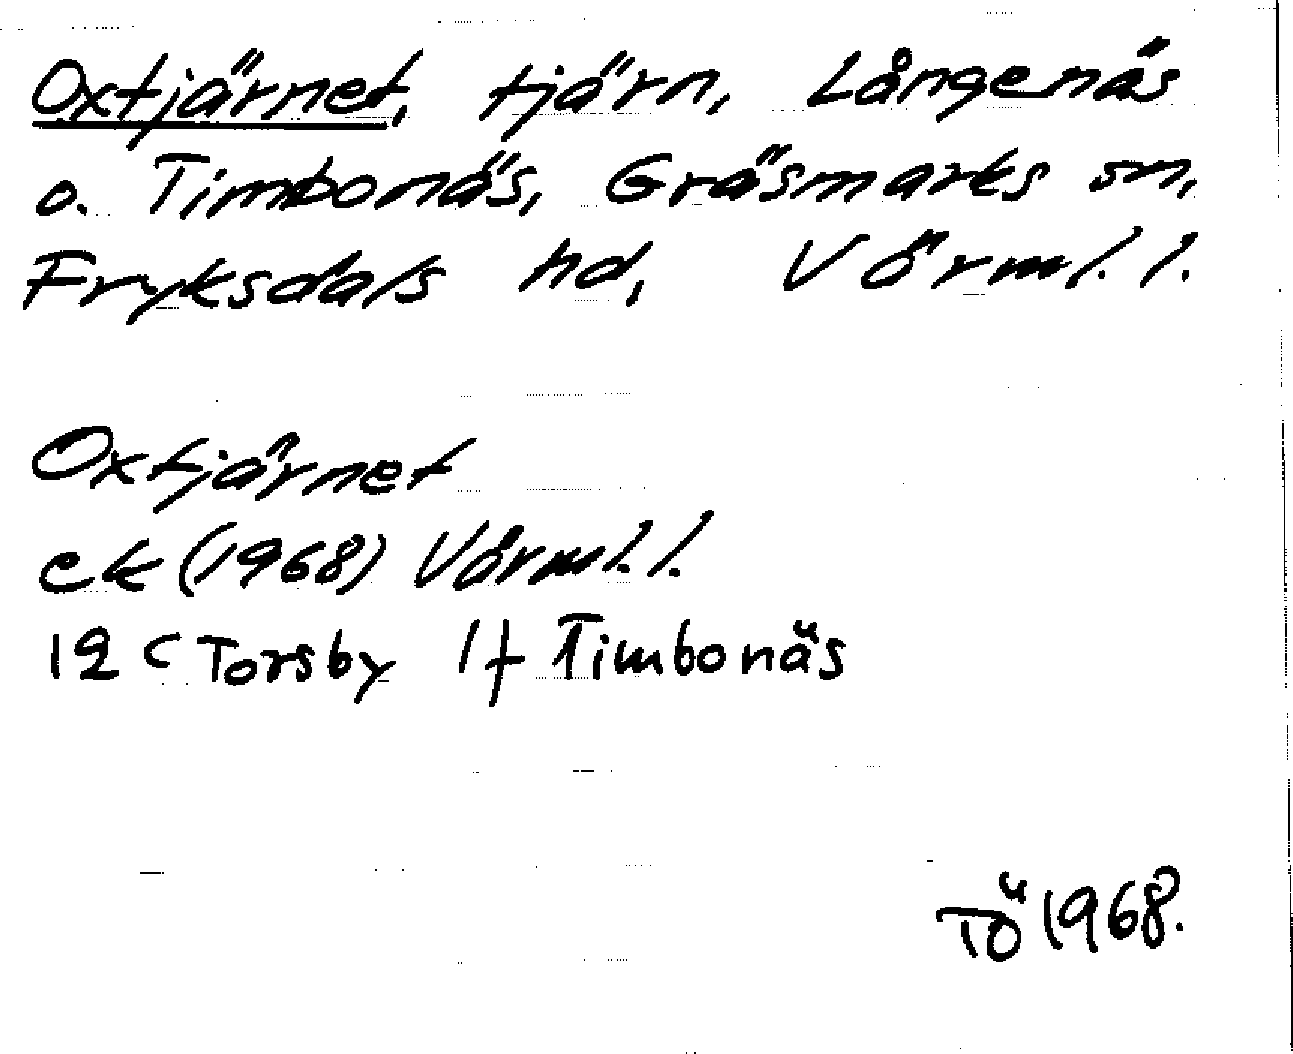 Oxtjärnet, tjärn, Långenäs
o. Timbonäs, Gräsmarks sn,
Fryksdals hd, Värml. l.
Oxtjärnet
ek (1968) Värml. l.
12 C Torsby 1f Timbonäs
TÖ 1968.